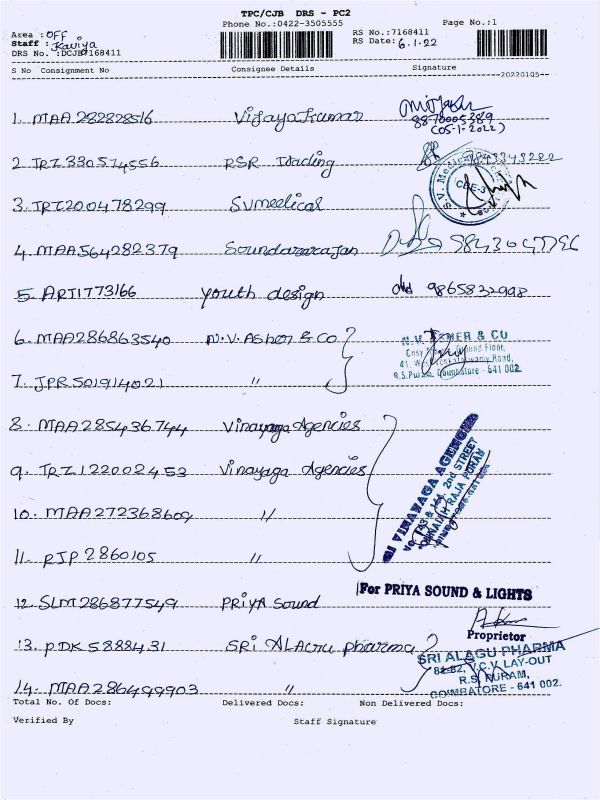 TPC/CJB DRS - PC2
Phone No.:0422-3505555
Page No.:1
Area : OFF
Staff : Kaviya
DRS No. :DCJB7168411
RS No.:7168411
RS Date: 6.1.22
S No Consignment No Consignee Details Signature
20220105
1. MAA 282828516 Vijayakumar 8870005389
(05-1-2022)
2. TRZ 330574556 RSR Trading 9843343222
3. TRZ 200478299 SV medical S.V. CBE-3
4. MAA 564282379 Soundararajan
5. ART1773166 youth design 9865832998
6. MAA 286863540 N.V. Asher & Co N.V. ASHER & CO
Ground Floor,
R.S. Puram, Coimbatore - 641 002.
7. JPR 501914021 "
8. MAA 285436744 Vinayaga Agencies
9. TRZ 122002453 Vinayaga Agencies
SRI VINAYAGA AGENCIES
2nd STREET
10. MAA 272368609 "
11. RJP 2860105 "
For PRIYA SOUND & LIGHTS
12. SLM 286877549 PRIYA Sound
Proprietor
13. PDK 5888431 SRI ALAGU pharma
SRI ALAGU PHARMA
81-82, V.C.V. LAY-OUT
R.S. PURAM,
COIMBATORE - 641 002.
14. MAA 286499903 "
Total No. Of Docs: Delivered Docs: Non Delivered Docs:
Verified By Staff Signature